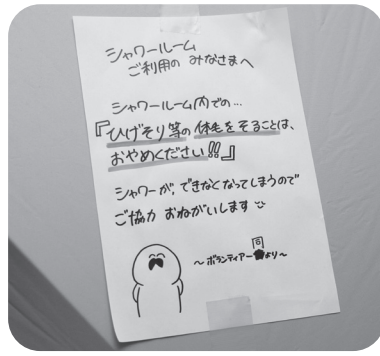 シャワールーム
ご利用の みなさまへ
シャワールーム内での…
『ひげそり等の 体毛をそることは、
おやめください!!』
シャワーが、できなくなってしまうので
ご協力 おねがいします
〜ボランティアー同より〜